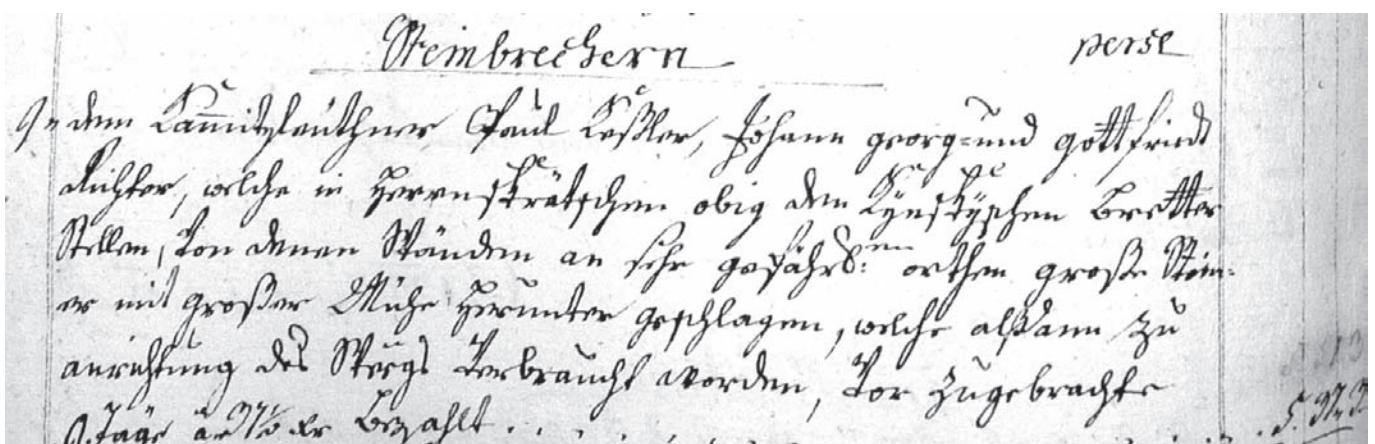 Steinbrechern perse
dem Kamnitzleuthner Paul Keßler, Johann georg= und gottfriedt
Richter, welche in Herrnskrätschen obig dem Kynskyschen Bretter
Stellen, Von denen Wänden an sehr gefährl: orthen große Stein=
er mit großer Mühe herunter geschlagen, welche alßdann zu
anrichtung des Weegs Verbraucht worden, Vor zugebrachte
Täge bezahlt . . .